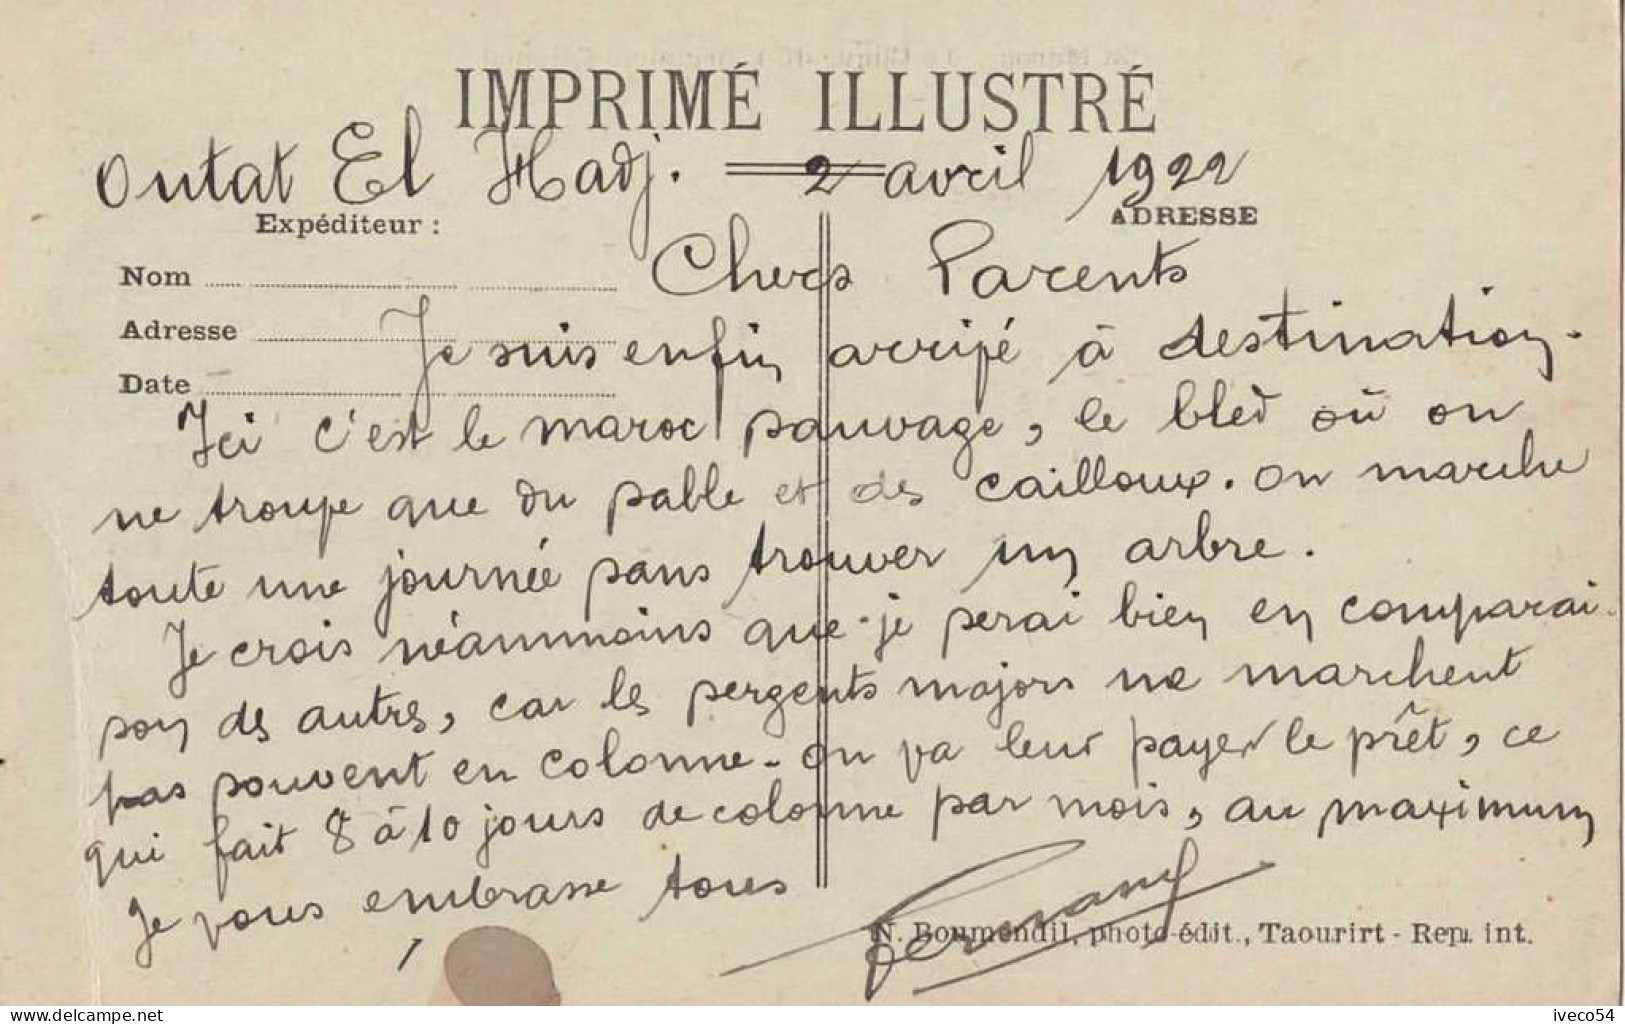 IMPRIMÉ ILLUSTRÉ
Outat El Hadj. 2 avril 1922
Expéditeur :
ADRESSE
Nom
Adresse
Date
Chers Parents
Je suis enfin arrivé à destination.
Ici c'est le maroc sauvage, le bled où on
ne trouve que du sable et des cailloux. On marche
toute une journée sans trouver un arbre.
Je crois néanmoins que je serai bien en comparai-
son des autres, car les sergents majors ne marchent
pas souvent en colonne. On va leur payer le prêt, ce
qui fait 8 à 10 jours de colonne par mois, au maximum
Je vous embrasse tous
Fernand
N. Boumendil, photo-édit., Taourirt - Rep. int.
delcampe.net
iveco54